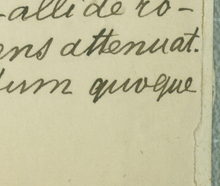 -alli de ro-
ens attenuat.
dum quoque